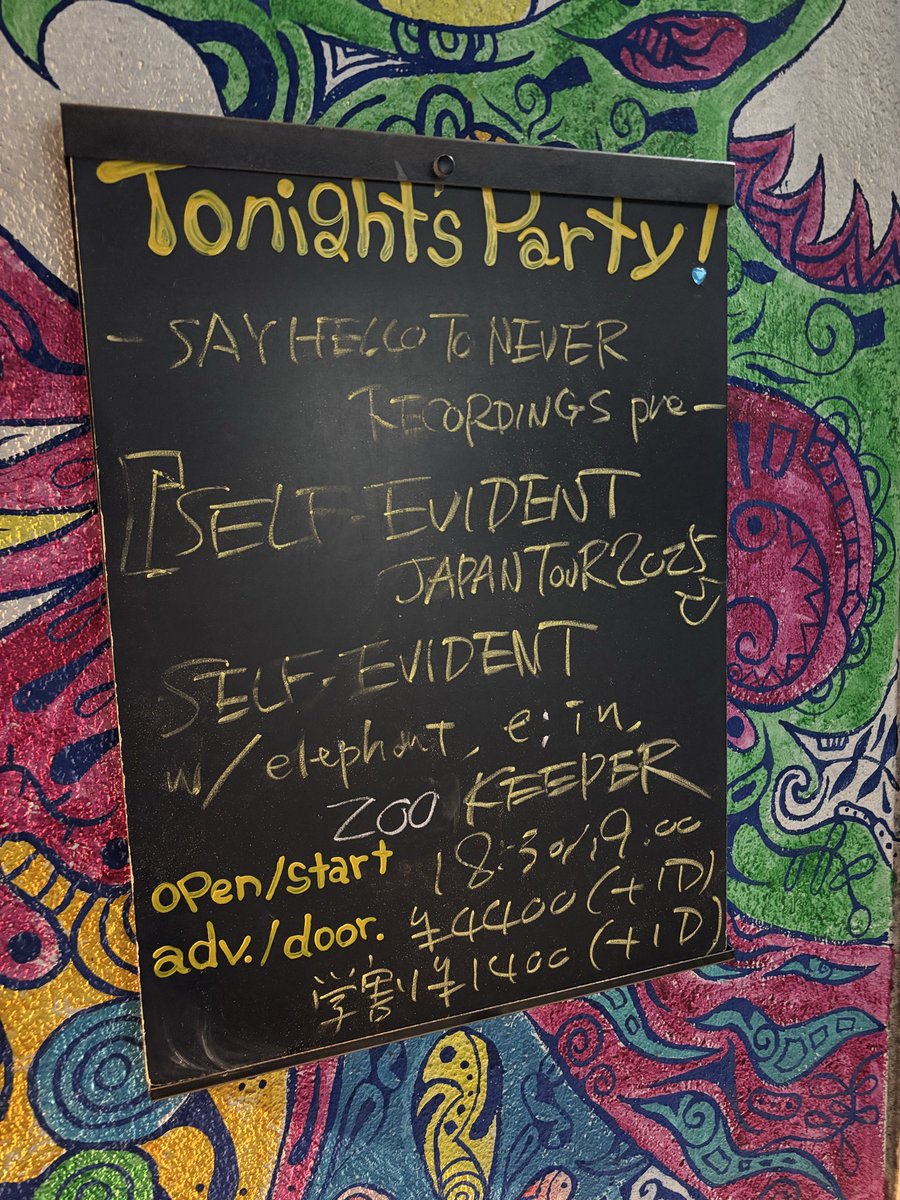 Tonight's Party!
- SAY HELLO TO NEVER
RECORDINGS pre -
『SELF-EVIDENT
JAPAN TOUR 2025』
SELF-EVIDENT
w/ elephant, e;in,
ZOO KEEPER
open/start 18:30/19:00
adv./door. ¥4400 (+1D)
学割 ¥1400 (+1D)